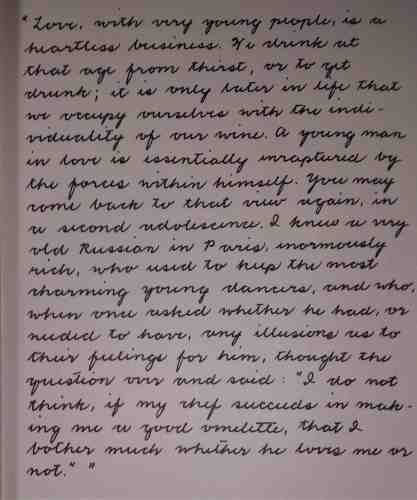 "Love, with very young people, is a
heartless business. We drink at
that age from thirst, or to get
drunk; it is only later in life that
we occupy ourselves with the indi-
viduality of our wine. A young man
in love is essentially enraptured by
the forces within himself. You may
come back to that view again, in
a second adolescence. I knew a very
old Russian in Paris, enormously
rich, who used to keep the most
charming young dancers, and who,
when once asked whether he had, or
needed to have, any illusions as to
their feelings for him, thought the
question over and said: "I do not
think, if my chef succeeds in mak-
ing me a good omelette, that I
bother much whether he loves me or
not." "